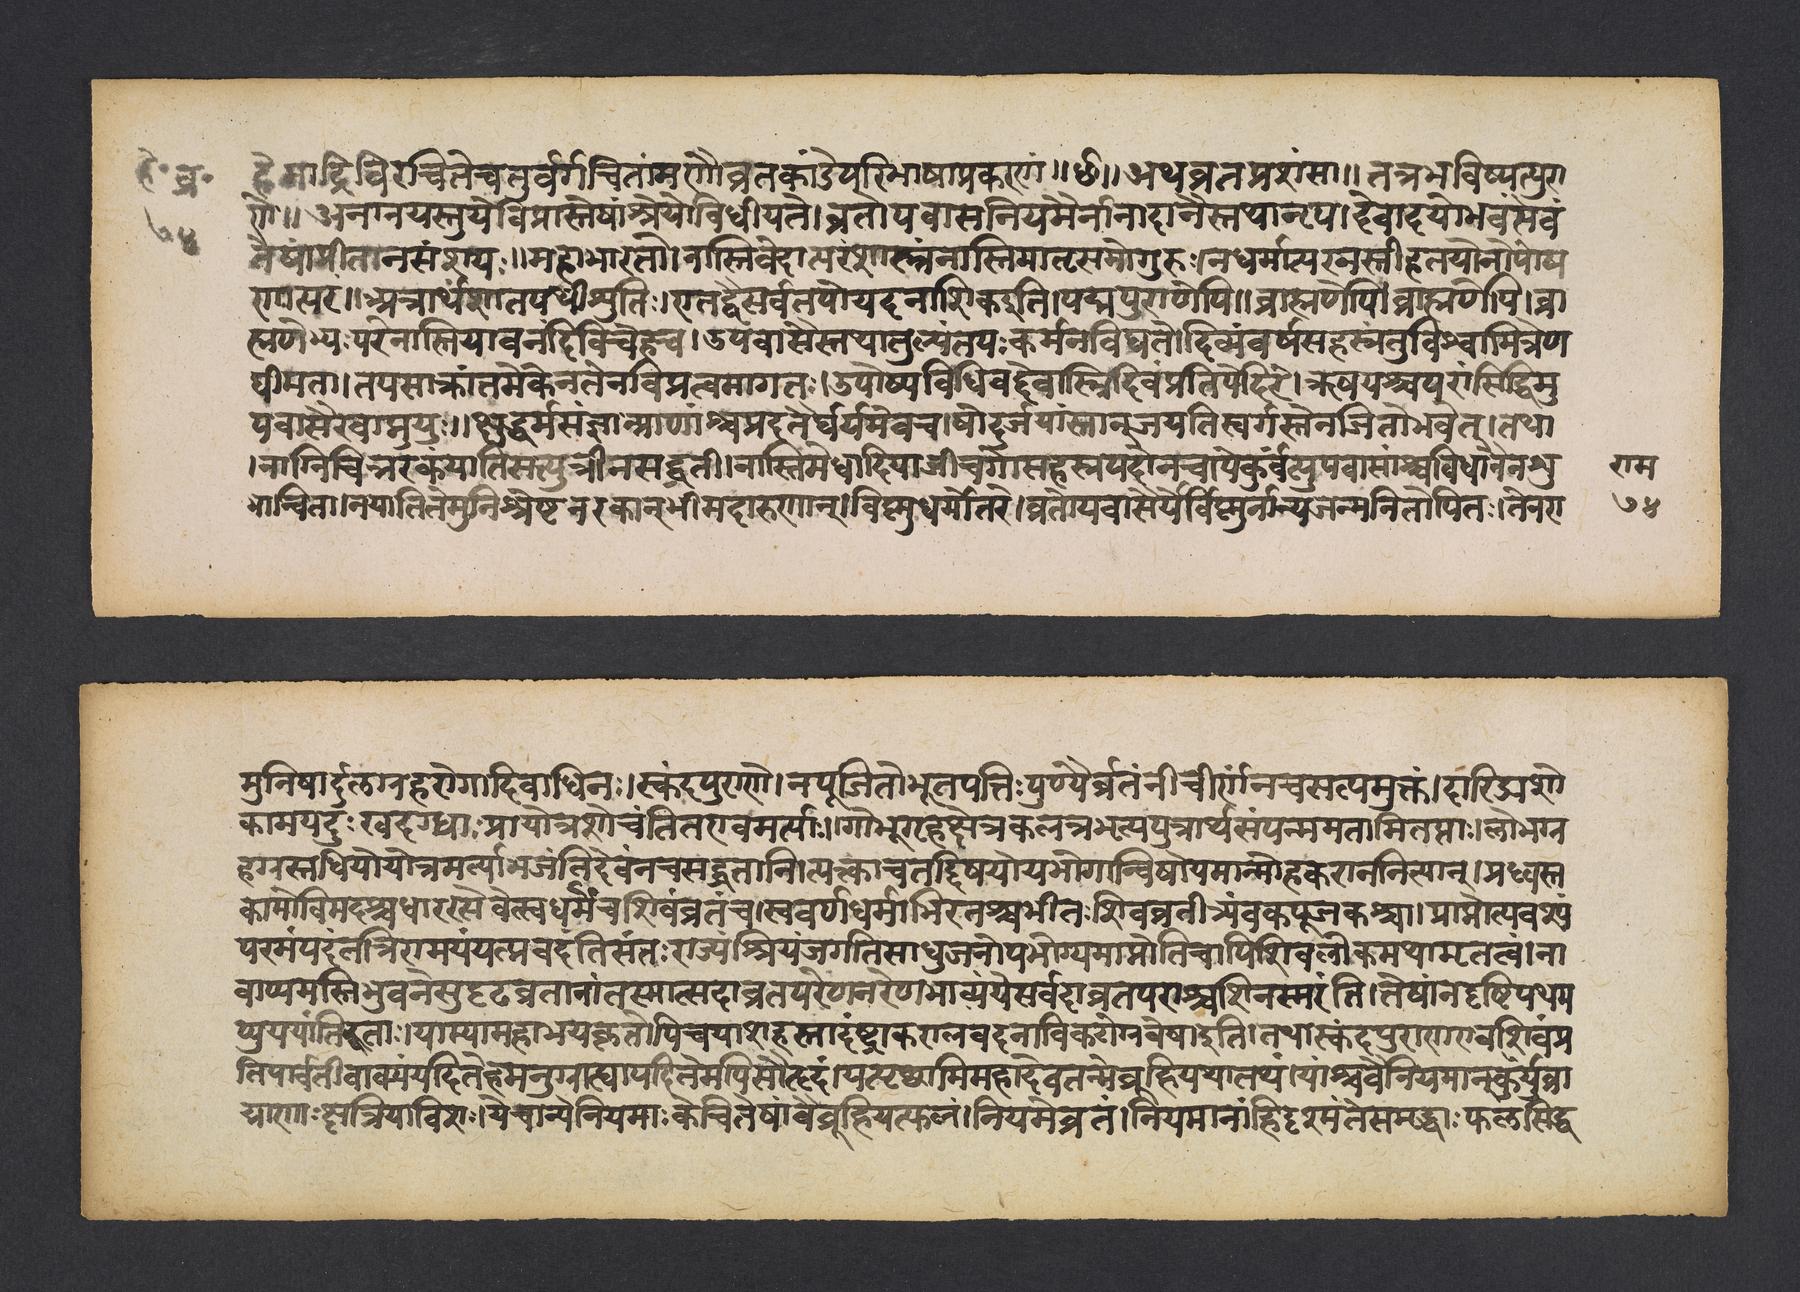 हे॰ व्र॰
७४
हेमाद्रिविरचितेचतुर्वर्गचिंतामणौव्रतकांडेपरिभाषाप्रकरणं॥छ॥अथव्रतप्रशंसा॥तत्रभविष्यत्पुरा
णे॥अनाग्नयस्तुयेविप्रास्तेषांश्रेयोविधीयते।व्रतोपवासनियमैर्नानादानैस्तथानृप।देवादयोभवंसेवं
तेषांप्रीतानसंशयः॥महाभारते।नास्तिवेदात्परंशास्त्रंनास्तिमातृसमोगुरुः।नधर्मात्परनस्तीहतपोनोपोष
णात्पर॥अत्रार्थेशातपथीश्रुतिः।एतद्वैसर्वंतपोयदनाशिकइति।पद्मपुराणेपि॥ब्राह्मणेपि।ब्राह्मणेपि।ब्रा
ह्मणेभ्यःपरंनास्तियावनदिविचेहच।उपवासैस्तथातुल्यंतपःकर्मनविद्यते।दिव्यंवर्षसहस्रंतुविश्वामित्रेण
धीमता।तपसाक्रांतमेकेनतेनविप्रत्वमागतः।उपोष्यविधिवद्देवास्त्रिदिवंप्रतिपेदिरे।ऋषयश्चपरांसिद्धिमु
पवासैरवाप्नुयुः॥क्षुद्धर्मसंज्ञान्प्राणांश्चप्रदतेर्धैर्यमेवच।षोदुर्जयांस्तान्जयतिस्वर्गस्तेनजितोभवेत्।तथा
।नाग्निचिन्नरकंयातिसत्पुत्रीनसद्व्रती।नास्तिमेधादियाजीचगोसहस्रप्रदोनचापेकुर्वंत्युपवासांश्चविधानेनशु
भान्विता।नयांतितेमुनिश्रेष्ठनरकान्भीमदारुणान्।विष्णुधर्मोत्तरे।व्रतोपवासैर्यैर्विष्णुर्नान्यजन्मनितोषितः।तेनरा
राम
७४
मुनिषार्दूलग्रहरोगादिवाधिनः।स्कंदपुराणे।नपूजितोभूतपतिःपुण्यैर्व्रतंनोचीर्णंनचसत्यमुक्तं।दारिद्र्यशो
कामयदुःखदग्धाःप्रायोत्रशोचंतितएवमर्त्याः।गोभूगृहक्षेत्रकलत्रभृत्यपुत्रार्थसंपन्ममतामितप्ताः।लोभग्र
हग्रस्तधियोयोत्रमर्त्याभजंतिदेवंनचसद्व्रतानि।त्यक्त्वाचतद्विषयोपभोगान्विषोपमान्मोहकराननित्यान्।प्रध्वस्त
कामोविमदश्चधीरःसेवेत्स्वधर्मंचशिवंव्रतंच।स्ववर्णधर्माभिरतश्चभीतःशिवव्रतीत्र्यंबकपूजकश्च।प्राप्नोत्यवश्यं
परमंपदंतन्निरामयंयत्प्रवदंतिसंतःराज्यंश्रियंजगतिसाधुजनोपभोग्यमाप्नोतिचापिशिवलोकमथामृतत्वं।ना
वाप्यमस्तिभुवनेसुदृढव्रतानांतस्मात्सदाव्रतपरेणनरेणभाव्यंयेसर्वदाव्रतपराश्चशिवंस्मरंति।तेषांनदृष्टिपथम
प्युपयांतिदूताः।याम्यामहाभयकृतोपिचपाशहस्तादंष्ट्राकरालवदनाविकटोग्रवेषाइति।तथास्कंदपुराणएवशिवंप्र
तिपार्वतीवाक्यंयदितेहमनुग्राह्यायदितेमयिसौहृदं।पत्पृच्छामिमहादेवतन्मेब्रूहियथातथं।यांश्चवैनियमान्कुर्युर्ब्रा
ह्मणाःक्षत्रियाविशः।येचान्येनियमाःकेचितेषांवैब्रूहियत्फलं।नियमेव्रतं।नियमानांहिदृश्यंतेसमृद्धाःफलसिद्ध